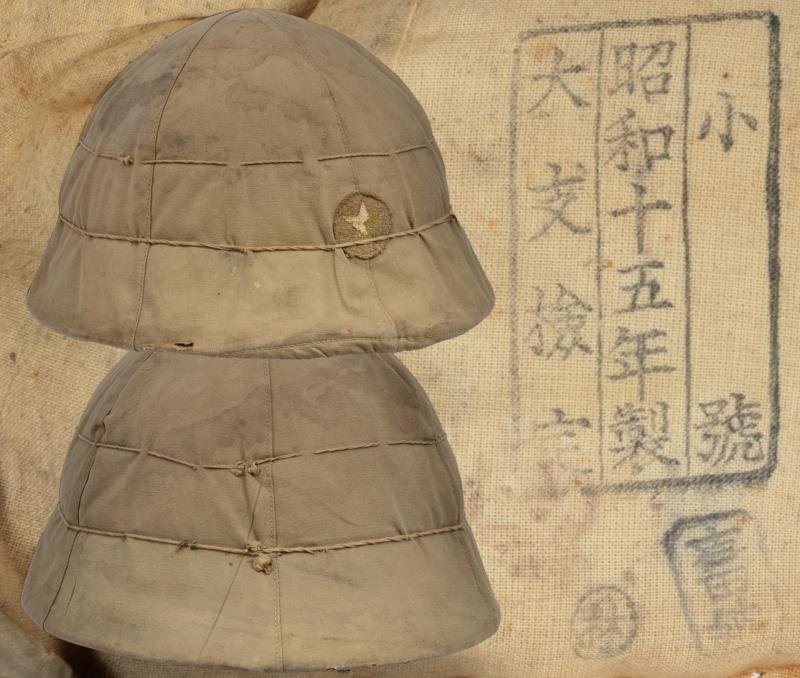 小號
昭和十五年製
大支檢定